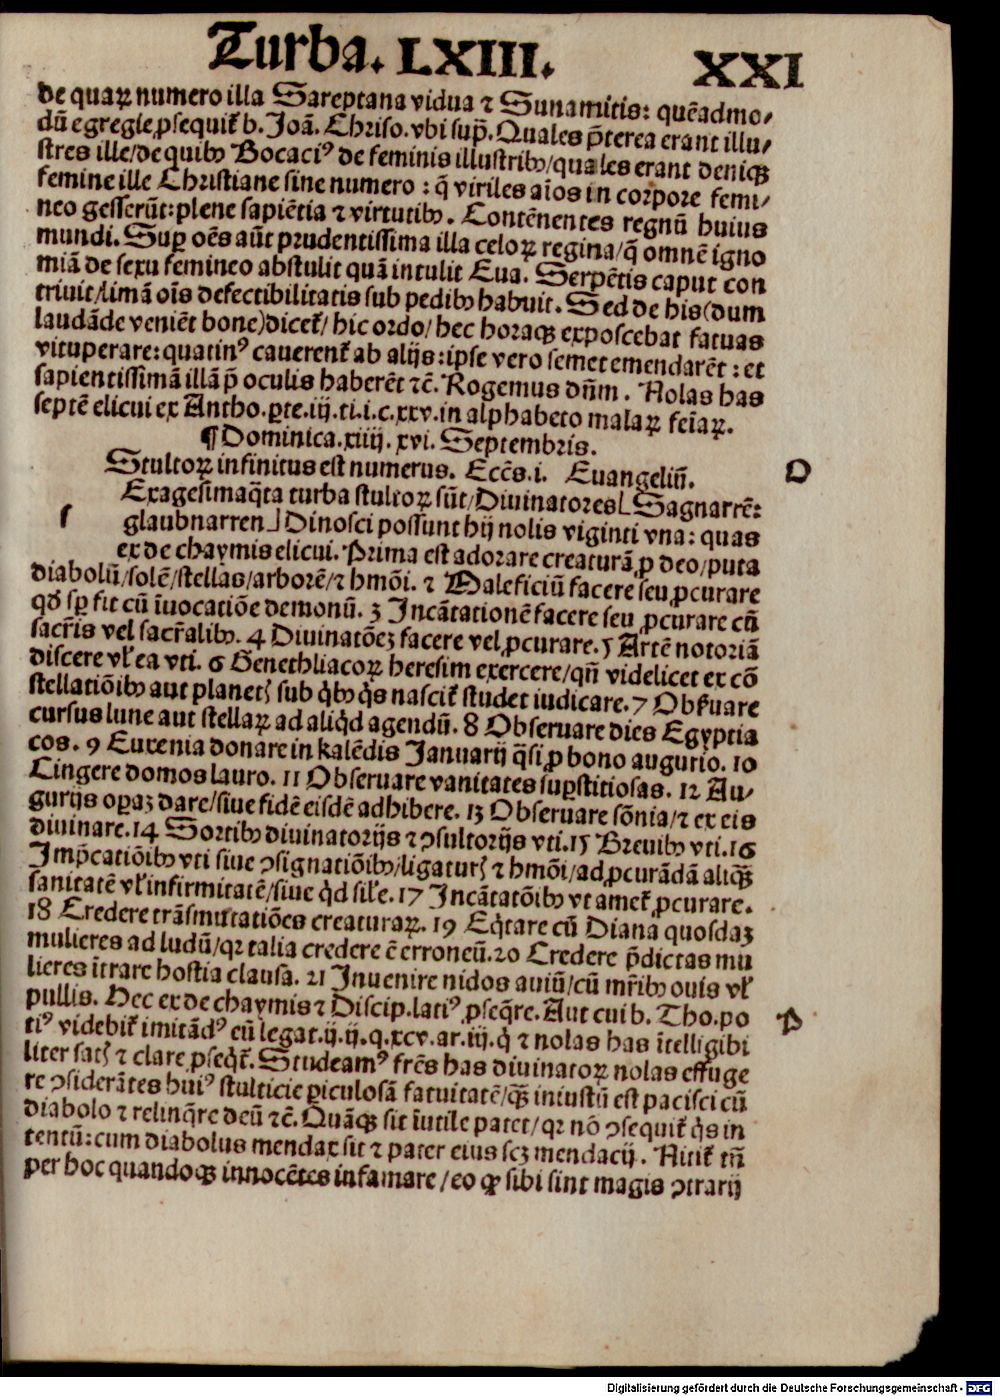 Turba. LXIII. XXI
de quaꝝ numero illa Sareptana vidua ⁊ Sunamitis: quẽadmo⸗
dũ egregie ꝓsequit᷑ b. Joã. Chriso. vbi sup̃. Quales p̃terea erant illu⸗
stres ille/de quibꝰ Bocaciꝰ de feminis illustribꝰ/quales erant deniqꝫ
femine ille Christiane sine numero: q̃ viriles aĩos in corpore femi⸗
neo gesserũt: plene sapiẽtia ⁊ virtutibꝰ. Contẽnentes regnũ huius
mundi. Suꝑ oẽs aũt prudentissima illa celoꝝ regina/q̃ omnẽ igno
miã de sexu femineo abstulit quã intulit Eua. Serpẽtis caput con
triuit/limã oĩs defectibilitatis sub pedibꝰ habuit. Sed de his (dum
laudãde veniẽt bone) dicet᷑/ hic ordo/ hec horaqꝫ exposcebat fatuas
vituperare: quatinꝰ cauerent᷑ ab alijs: ipse vero semet emendarẽt: et
sapientissimã illã p̃ oculis haberẽt ⁊c̃. Rogemus dñm. Nolas has
septẽ elicui ex Antho. ꝑte. iij. ti. i. c. xxv. in alphabeto malaꝝ feĩaꝝ.
¶ Dominica. xiiij. xvi. Septembris.
Stultoꝝ infinitus est numerus. Eccẽs. i. Euangeliũ. D
Exagesimaq̃ta turba stultoꝝ sũt/Diuinatores⌊Sagnarrẽ:
ſ glaubnarren⌋ Dinosci possunt hij nolis viginti vna: quas
ex de chaymis elicui. Prima est adorare creaturã ꝓ deo/puta
diabolũ/solẽ/stellas/arborẽ/⁊ hmõi. 2 Maleficiũ facere seu ꝓcurare
qd̓ sꝑ fit cũ ĩuocatiõe demonũ. 3 Incãtationẽ facere seu ꝓcurare cũ
sacr̃is vel sacr̃alibꝰ. 4 Diuinatõeꝫ facere vel ꝓcurare. 5 Artẽ notoriã
discere vl̓ ea vti. 6 Genethliacoꝝ heresim exercere/qñ videlicet ex cõ
stellatiõibꝰ aut planetꝭ sub q̓bꝰ q̓s nascit᷑ studet iudicare. 7 Obẜuare
cursus lune aut stellaꝝ ad aliq̓d agendũ. 8 Obseruare dies Egyptia
cos. 9 Euxenia donare in kalẽdis Januarij q̃si ꝓ bono augurio. 10
Cingere domos lauro. 11 Obseruare vanitates suꝑstitiosas. 12 Au⸗
gurijs oꝑaꝫ dare/siue fidẽ eisdẽ adhibere. 13 Obseruare sõnia/⁊ ex eis
diuinare. 14 Sortibꝰ diuinatorijs ⁊ ꝯsultorijs vti. 15 Breuibꝰ vti. 16
Imp̃catiõibꝰ vti siue ꝯsignatiõibꝰ/ligaturꝭ ⁊ hmõi/ad ꝓcurãdã aliqꝫ̃
sanitatẽ vl̓ infirmitatẽ/siue q̓d sil̓e. 17 Incãtatõibꝰ vt amet᷑ ꝓcurare.
18 Credere trãsmutatiões creaturaꝝ. 19 Eq̓tare cũ Diana quosdaꝫ
mulieres ad ludũ/qꝛ talia credere ẽ erroneũ. 20 Credere p̃dictas mu
lieres ĩtrare hostia clausa. 21 Inuenire nidos auiũ/cũ mr̃ibꝰ ouis vl̓
pullis. Hec ex de chaymis ⁊ Discip. latiꝰ ꝓseq̃re. Aut cui b. Tho. po P
tiꝰ videbit᷑ imitãdꝰ eũ legat. ij. ij. q. xcv. ar. iij. q̓ ⁊ nolas has ĩtelligibi
liter satꝭ ⁊ clare ꝓseq̓t᷑. Studeamꝰ fr̃es has diuinatoꝝ nolas effuge
re ꝯsiderãtes huiꝰ stulticie ꝑiculosã fatuitatẽ/qꝫ̃ iniustũ est pacisci cũ
diabolo ⁊ relinq̃re deũ ⁊c̃. Quãqꝫ sit ĩutile patet/qꝛ nõ ꝯsequit᷑ q̓s in
tentũ: cum diabolus mendax sit ⁊ pater eius scꝫ mendacij. Nitit᷑ tñ
per hoc quandoqꝫ innocẽtes infamare/eo ꝙ sibi sint magis ꝯtrarij
Digitalisierung gefördert durch die Deutsche Forschungsgemeinschaft - DFG